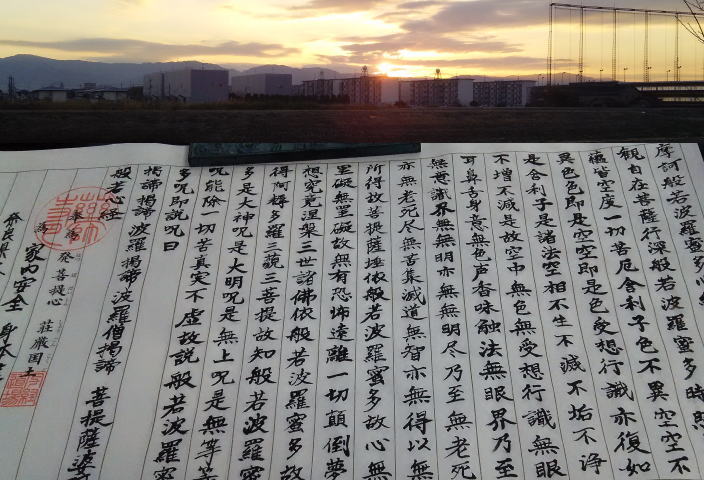 摩訶般若波羅蜜多心経
観自在菩薩行深般若波羅蜜多時照
蘊皆空度一切苦厄舎利子色不異空空不
異色色即是空空即是色受想行識亦復如
是舎利子是諸法空相不生不滅不垢不浄
不増不減是故空中無色無受想行識無眼
耳鼻舌身意無色声香味触法無眼界乃至
無意識界無無明亦無無明尽乃至無老死
亦無老死尽無苦集滅道無智亦無得以無
所得故菩提薩埵依般若波羅蜜多故心無
罣礙無罣礙故無有恐怖遠離一切顛倒夢
想究竟涅槃三世諸佛依般若波羅蜜多故
得阿耨多羅三藐三菩提故知般若波羅蜜
多是大神呪是大明呪是無上呪是無等等
呪能除一切苦真実不虚故説般若波羅蜜
多呪即説呪曰
掲諦掲諦波羅掲諦波羅僧掲諦 菩提薩婆
般若心経
奉 発菩提心 荘厳国土
為 家内安全 身